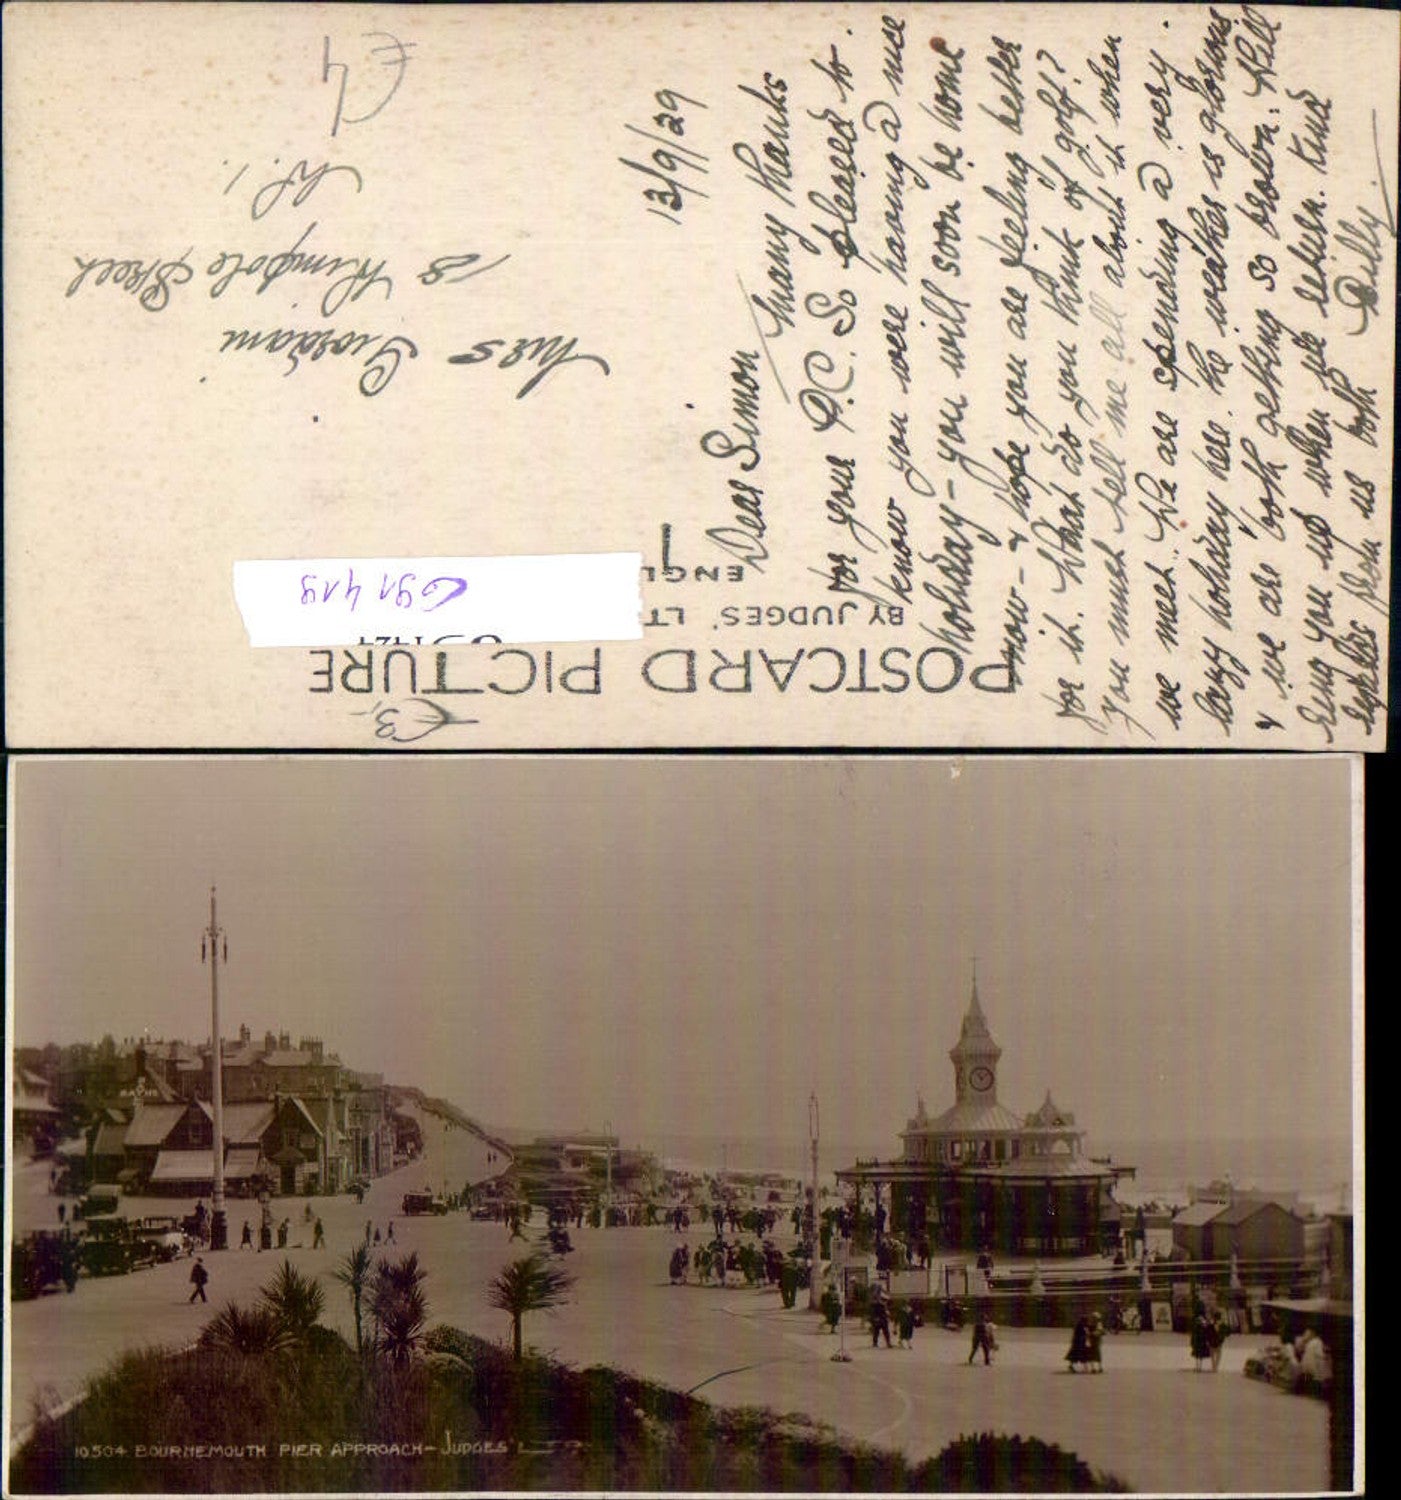 £4
13/9/29
Dear Simon
Many thanks
for your P.C. So pleased to
know you were having a nice
holiday - you will soon be home
now - & hope you are feeling better
for it. What do you think of golf?
You must tell me all about it when
we meet. We are spending a very
lazy holiday here. The weather is glorious
& we are both getting so brown. Will
ring you up when we return. Kind
regards from us both Billy.
Mrs Giordani
18 Wimpole Street
W.1.
POSTCARD PICTURE
BY JUDGES' LT
ENGL
691 419
£3,-
BATHS
10504 BOURNEMOUTH PIER APPROACH - JUDGES' LTD